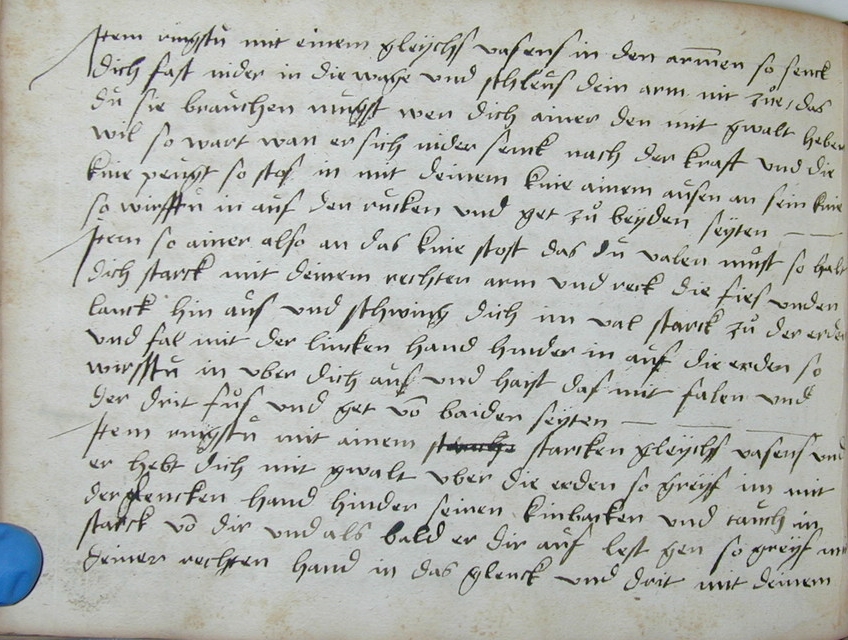 Item ringstu mit einem gleychs vasens in den armen so senck
dich fast nider in die wage vnd schleus dein arm nit zue, das
du sie brauchen mugst wen dich ainer den mit gwalt heben
wil so wart wan er sich nider senck nach der kraft vnd die
knie peugt so stos in mit deinem knie ainem ausen an sein knie
so wirfstu in auf den rucken vnd get zu beyden seyten
Item so ainer also an das knie stost das du valen must so halt
dich starck mit deinem rechten arm vnd reck die fies vnden
lanck hin aus vnd schwing dich im val starck zu der erden
vnd fal mit der lincken hand hinder in auf die erden so
wirfstu in vber dich aus vnd haist das mit falen vnd
der drit fus vnd get vo baiden seyten
Item ringstu mit ainem starcken gleychs vasens vnd
er hebt dich mit gwalt vber die erden so greyf im mit
der glencken hand hinder seinen kinbacken vnd tauch in
starck vo dir vnd als bald er dir auf lest gen so greyf im
deiner rechten hand in das glenck vnd drit mit deinem